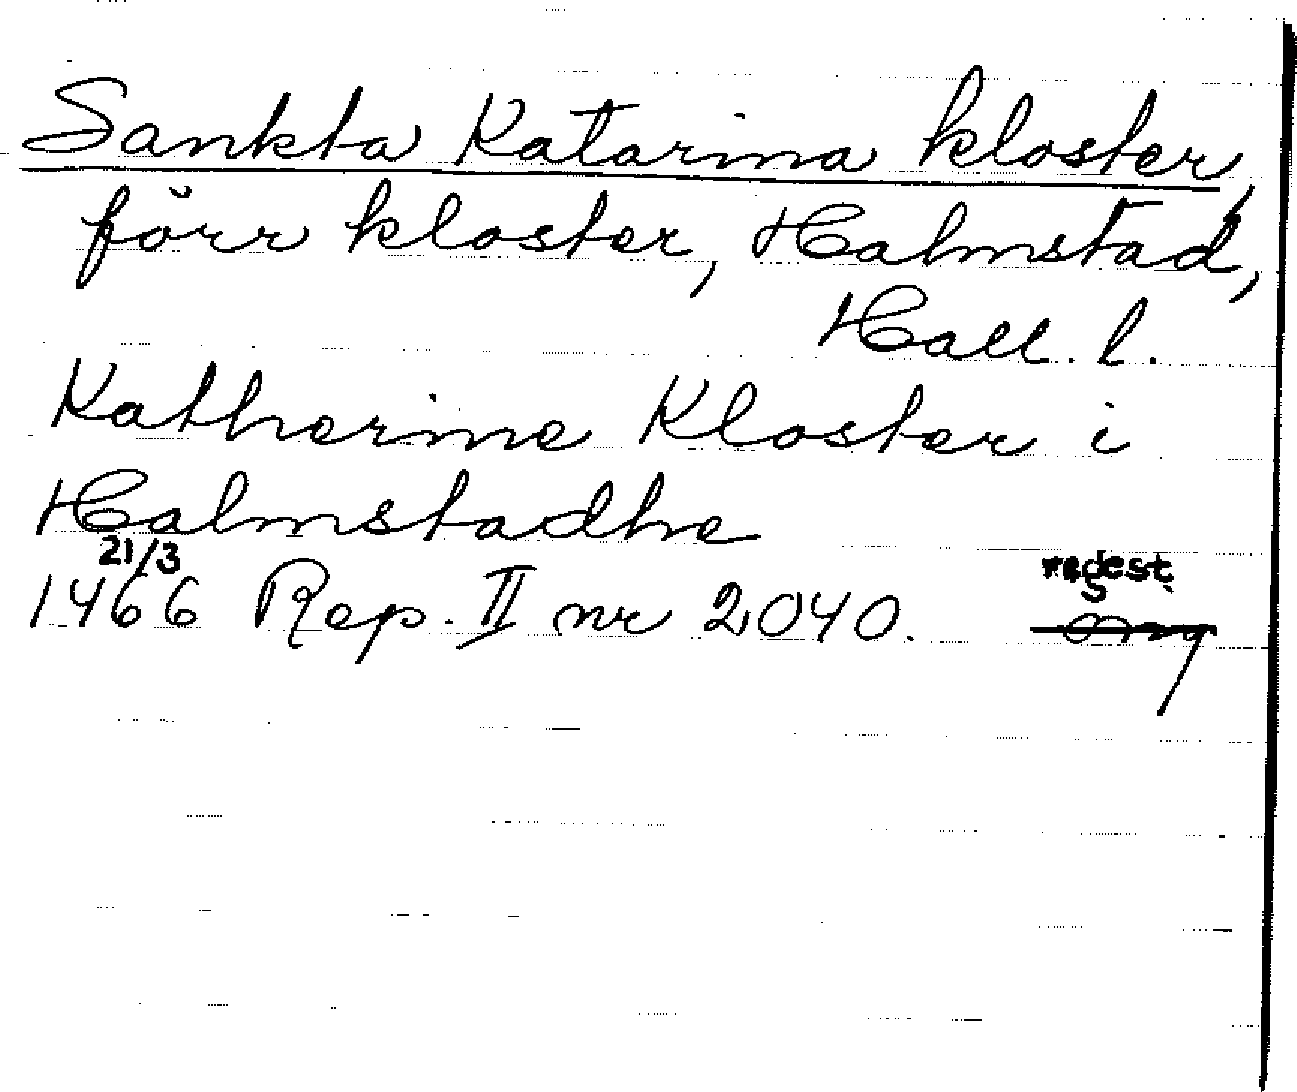 Sankta Katarina kloster,
förr kloster, Halmstad,
Hall. l.
Katherine Kloster i
Halmstadhe
21/3
1466 Rep. II nr 2040. regest.